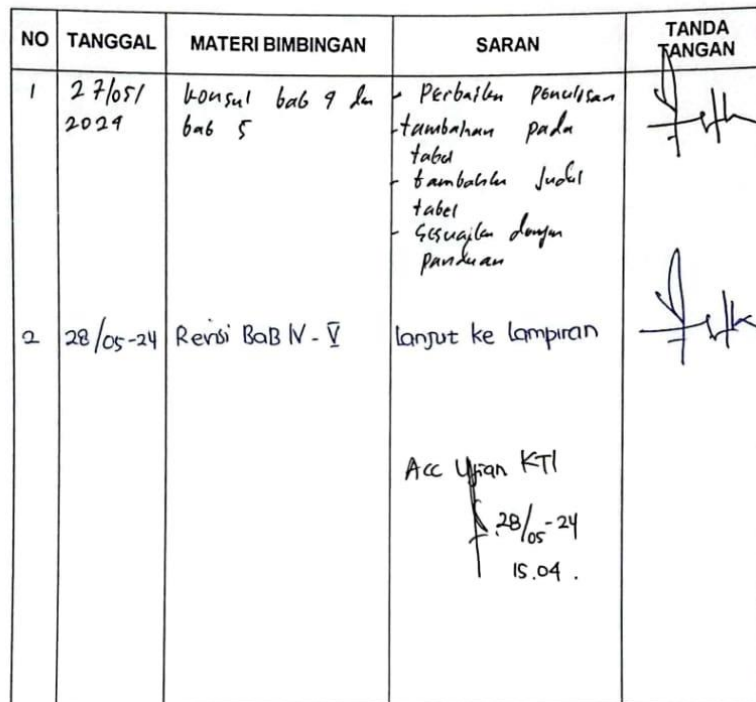 NO TANGGAL MATERI BIMBINGAN SARAN TANDA TANGAN
1 27/05/ 2024 konsul bab 4 dan bab 5
- Perbaikan penulisan
- tambahan pada
tabel
- tambahkan Judul
tabel
- Sesuaikan dengan
panduan
2 28/05-24 Revisi BaB IV - V lanjut ke lampiran
Acc Ujian KTI
28/05-24
15.04.